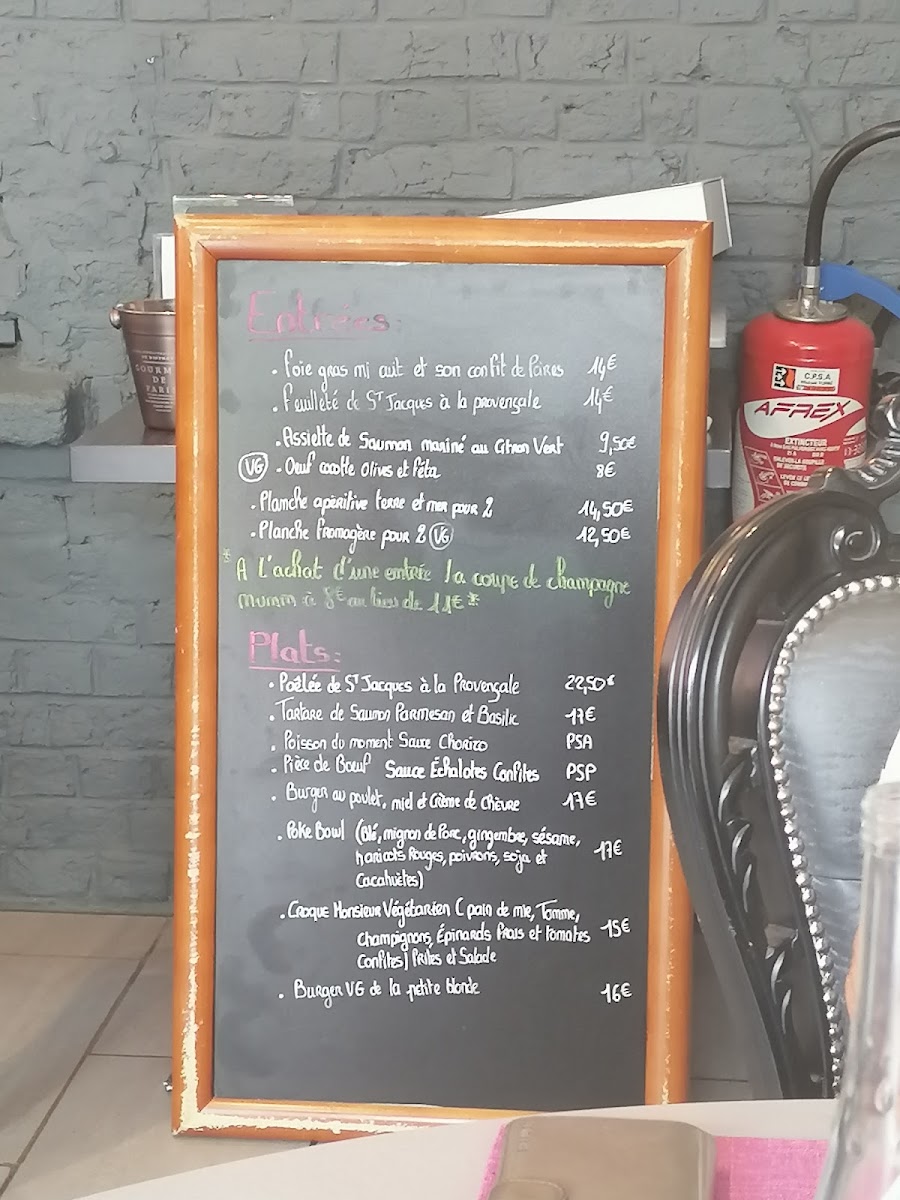 Entrées:
. Foie gras mi cuit et son confit de Poires 14€
. Feuilleté de St Jacques à la provençale 14€
. Assiette de Saumon mariné au Citron Vert 9,50€
VG . Oeuf cocotte Olives et féta 8€
. Planche apéritive terre et mer pour 2 14,50€
. Planche fromagère pour 2 VG 12,50€
* A l'achat d'une entrée la coupe de champagne
mumm à 8€ au lieu de 11€ *
Plats:
. Poêlée de St Jacques à la Provençale 22,50€
. Tartare de Saumon Parmesan et Basilic 17€
. Poisson du moment Sauce Chorizo PSA
. Pièce de Boeuf Sauce Échalotes Confites PSP
. Burger au poulet, miel et Crème de Chèvre 17€
. Poke Bowl (Blé, mignon de Porc, gingembre, sésame,
haricots Rouges, poivrons, soja et 17€
Cacahuètes)
. Croque Monsieur Végétarien (pain de mie, Tomme,
champignons, Épinards frais et tomates 15€
Confites) Frites et Salade
. Burger VG de la petite blonde 16€
GOURM
DE
PARIS
C.P.S.A
AFREX
EXTINCTEUR